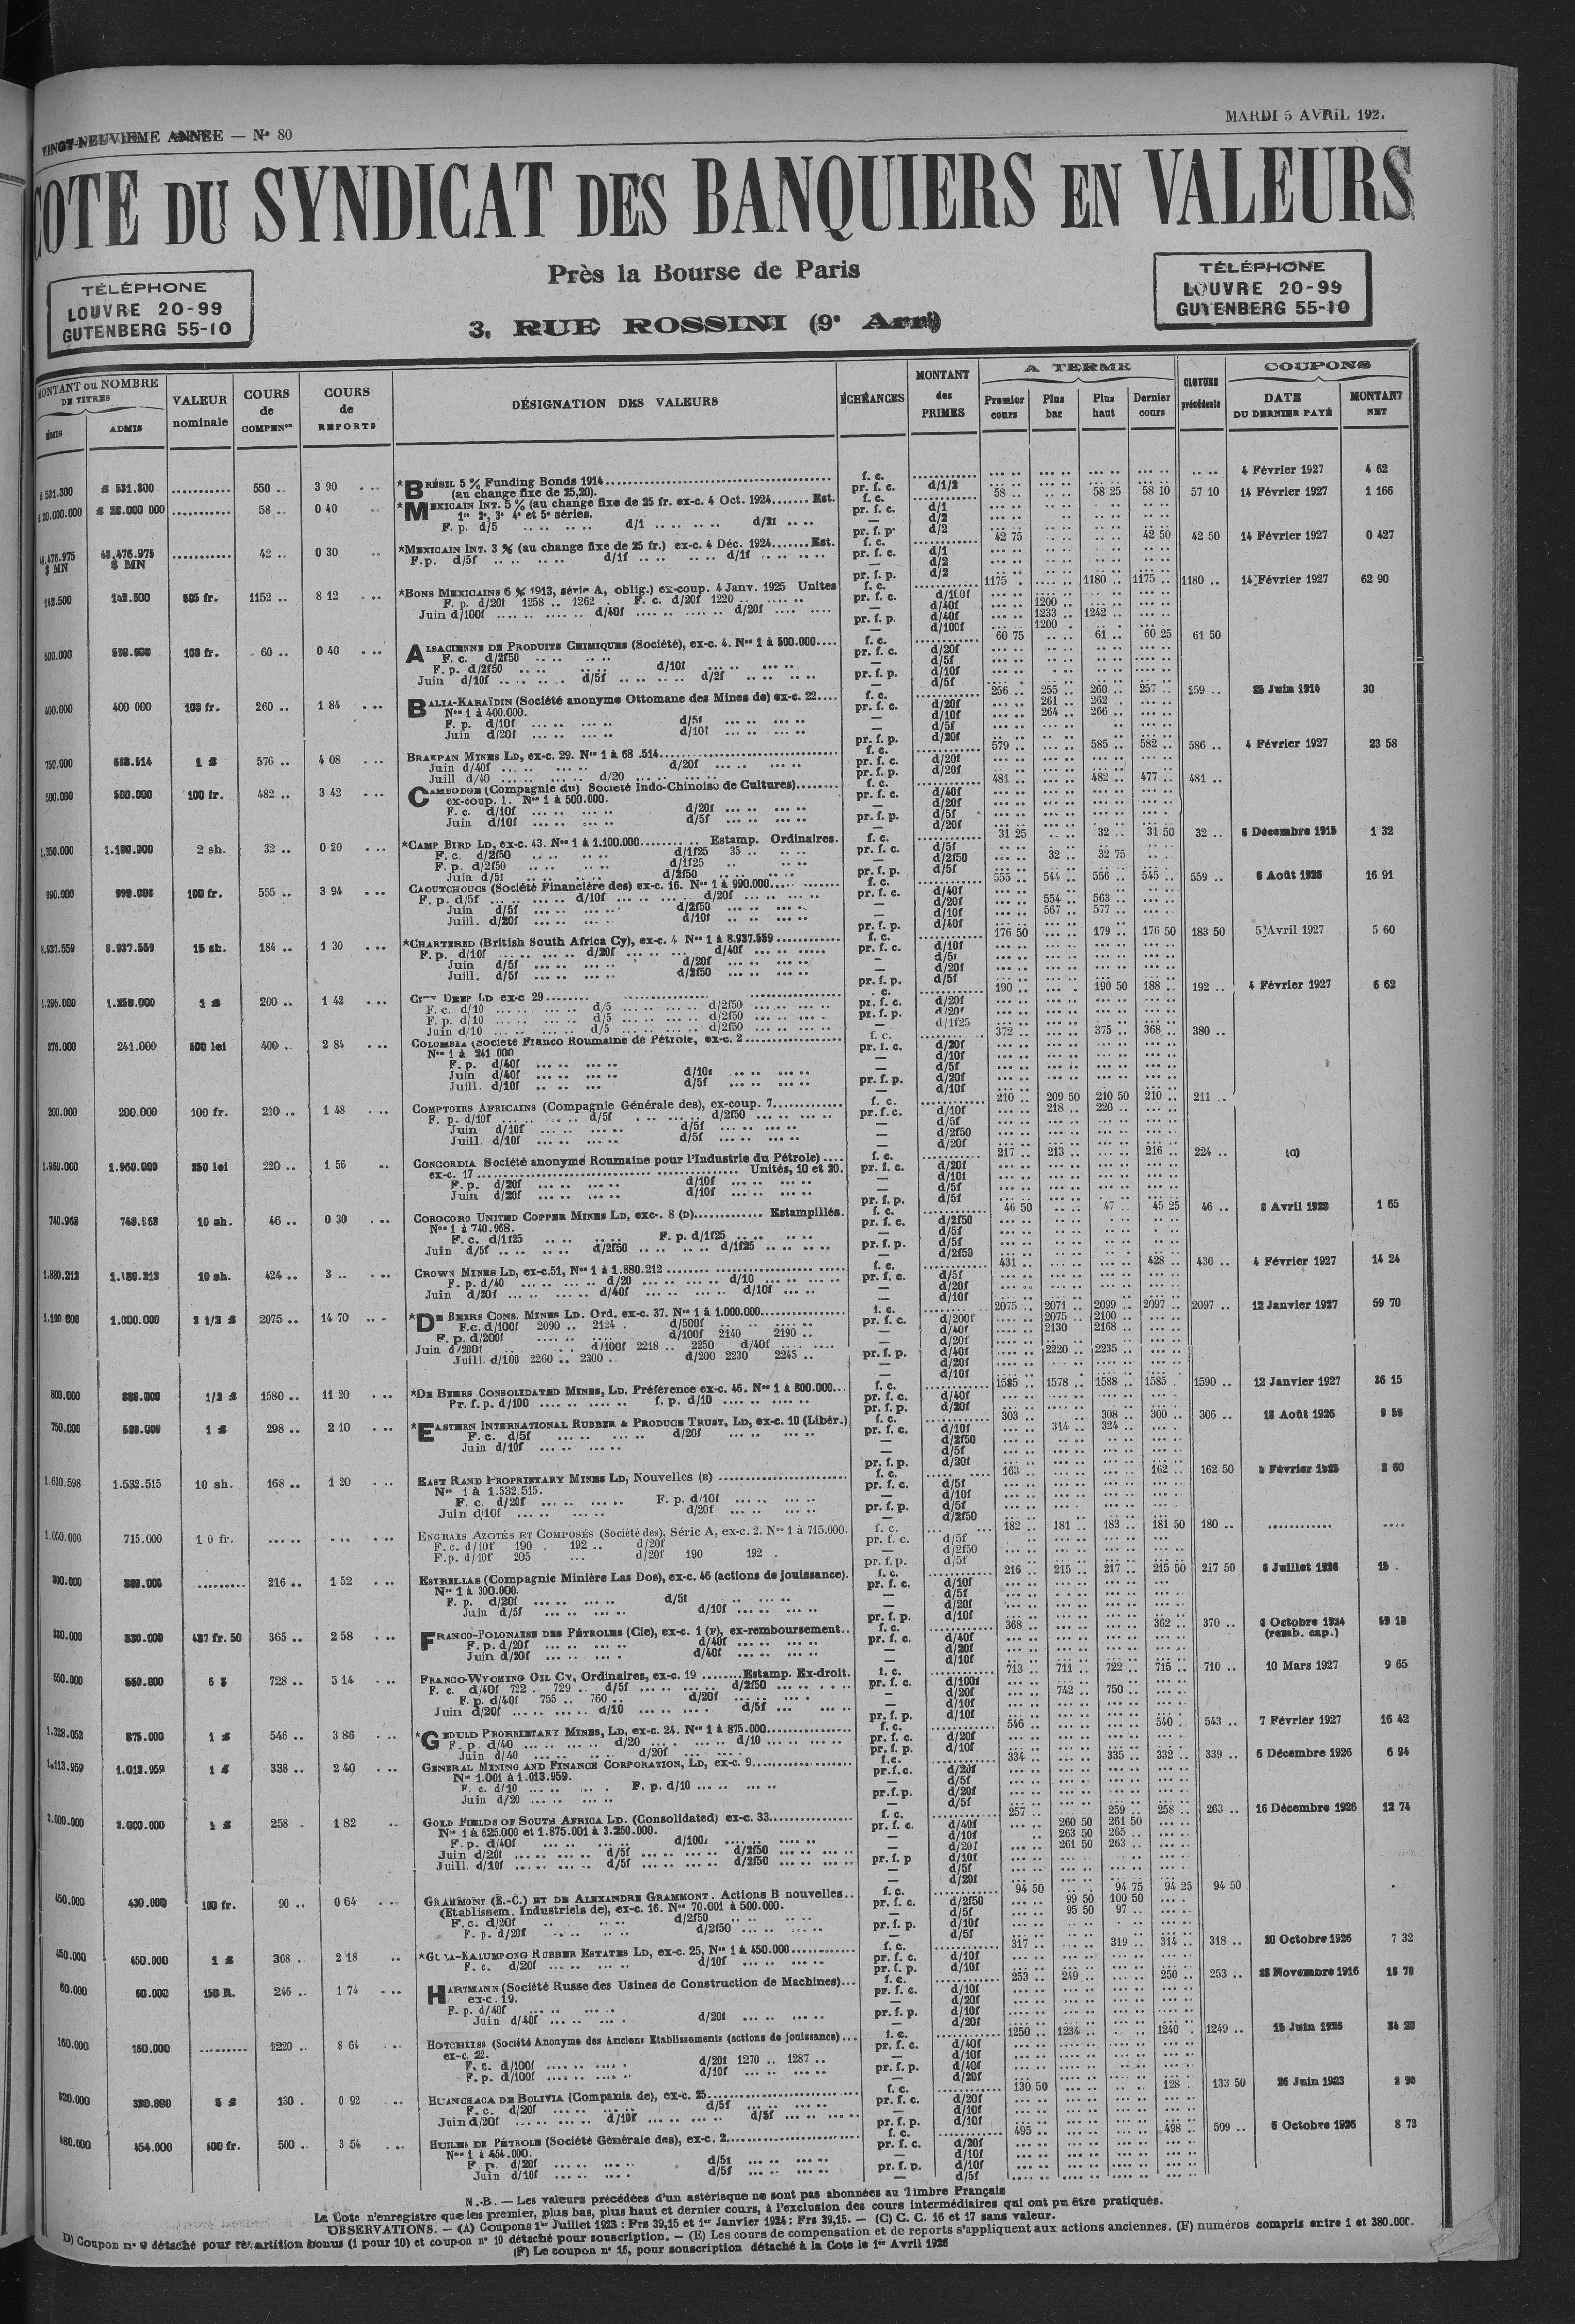 VINGT-NEUVIEME ANNEE — N° 80
MARDI 5 AVRIL 192
COTE DU SYNDICAT DES BANQUIERS EN VALEURS
Près la Bourse de Paris
3, RUE ROSSINI (9e Arrt)
TÉLÉPHONE
LOUVRE 20-99
GUTENBERG 55-10
TÉLÉPHONE
LOUVRE 20-99
GUTENBERG 55-10
MONTANT ou NOMBRE DE TITRES
ÉMIS ADMIS
VALEUR nominale
COURS de COMPENon
COURS de REPORTS
DÉSIGNATION DES VALEURS
ÉCHÉANCES
MONTANT des PRIMES
A TERME
Premier cours Plus bar Plus haut Dernier cours
CLOTURE précédente
COUPONS
DATE DU DERNIER PAYÉ MONTANT NET
550 .. 3 90 *BRÉSIL 5 % Funding Bonds 1914 f. c. 4 Février 1927 4 62
(au change fixe de 25,20). pr. f. c. d/1/2
58 .. 0 40 *MEXICAIN INT. 5 % (au change fixe de 25 fr. ex-c. 4 Oct. 1924 Est. f. c. 58 .. 58 25 58 10 57 10 14 Février 1927 1 166
1re 2e, 3e 4e et 5e séries. pr. f. c. d/1
F. p. d/5 d/1 d/21 — d/2
48.476.975 $ MN 42 .. 0 30 *MEXICAIN INT. 3 % (au change fixe de 25 fr.) ex-c. 4 Déc. 1924 Est. f. c. 42 75 42 50 42 50 14 Février 1927 0 427
F.p. d/5f d/1f d/1f pr. f. c. d/1
142.500 142.500 505 fr. 1152 .. 8 12 *BONS MEXICAINS 6 % 1913, série A, oblig.) ex-coup. 4 Janv. 1925 Unites f. c. 1175 1180 .. 1175 .. 1180 .. 14 Février 1927 62 90
F. p. d/20f 1258 .. 1262 F. c. d/20f 1220 pr. f. c. d/100f
Juin d/100f d/40f d/20f — d/40f 1200 ..
pr. f. p. d/40f 1233 .. 1242 ..
— d/100f 1200
500.000 100 fr. 60 .. 0 40 ALSACIENNE DE PRODUITS CHIMIQUES (Société), ex-c. 4. Nos 1 à 500.000 f. c. 60 75 61 .. 60 25 61 50
F. c. d/2f50 pr. f. c. d/20f
F. p. d/2f50 d/10f — d/5f
Juin d/10f d/5f d/2f pr. f. p. d/10f
400.000 400 000 100 fr. 260 .. 1 84 BALIA-KARAÏDIN (Société anonyme Ottomane des Mines de) ex-c. 22 f. c. 256 .. 255 .. 260 .. 257 .. 259 .. 25 Juin 1914 30
Nos 1 à 400.000. pr. f. c. d/20f 261 .. 262 ..
F. p. d/10f d/5f — d/10f 264 .. 266 ..
Juin d/20f d/10f — d/5f
750.000 1 £ 576 .. 4 08 BRAKPAN MINES LD, ex-c. 29. Nos 1 à 68 .514 f. c. 579 .. 585 .. 582 .. 586 .. 4 Février 1927 23 58
Juin d/40f d/20f pr. f. c. d/20f
Juill d/40 d/20 pr. f. p. d/20f
500.000 500.000 100 fr. 482 .. 3 42 CAMBODGE (Compagnie du) Société Indo-Chinoise de Cultures) f. c. 481 .. 482 .. 477 .. 481 ..
ex-coup. 1. Nos 1 à 500.000. pr. f. c. d/40f
F. c. d/10f d/20f — d/20f
Juin d/10f d/5f pr. f. p. d/5f
1.350.000 1.100.000 2 sh. 32 .. 0 20 *CAMP BIRD LD, ex-c. 43. Nos 1 à 1.100.000 Estamp. Ordinaires. f. c. 31 25 32 .. 31 50 32 .. 6 Décembre 1915 1 32
F. c. d/2f50 d/1f25 35 .. pr. f. c. d/5f
F. p. d/2f50 d/1f25 — d/2f50 32 .. 32 75
Juin d/5f d/2f50 pr. f. p. d/5f
990.000 990.000 100 fr. 555 .. 3 94 CAOUTCHOUCS (Société Financière des) ex-c. 16. Nos 1 à 990.000 f. c. 555 .. 544 .. 556 .. 545 .. 559 .. 6 Août 1926 16 91
F. p. d/5f d/10f d/20f pr. f. c. d/40f
Juin d/5f d/2f50 — d/20f 554 .. 563 ..
Juill. d/20f d/10f — d/10f 567 .. 577 ..
8.937.559 8.937.559 15 sh. 184 .. 1 30 *CHARTERED (British South Africa Cy), ex-c. 4 Nos 1 à 8.937.559 f. c. 176 50 179 .. 176 50 183 50 5 Avril 1927 5 60
F. p. d/10f d/20f d/40f pr. f. c. d/10f
Juin d/5f d/20f — d/5f
Juill. d/5f d/2f50 — d/20f
1 £ 200 .. 1 42 CITY DEEP LD ex-c 29 190 .. 190 50 188 .. 192 .. 4 Février 1927 6 62
F. c. d/10 d/5 d/2f50 pr. f. c. d/20f
F. p. d/10 d/5 d/2f50 pr. f. p. d/20f
Juin d/10 d/5 d/2f50 — d/1f25
275.000 241.000 500 lei 400 .. 2 84 COLOMBIA (Société Franco Roumaine de Pétrole, ex-c. 2 f. c. 372 .. 375 .. 368 .. 380 ..
Nos 1 à 241 000 pr. f. c. d/20f
F. p. d/40f — d/10f
Juin d/40f d/10f — d/5f
Juill. d/10f d/5f pr. f. p. d/20f
200.000 200.000 100 fr. 210 .. 1 48 COMPTOIRS AFRICAINS (Compagnie Générale des), ex-coup. 7 f. c. 210 .. 209 50 210 50 210 .. 211 ..
F. p. d/10f d/5f d/2f50 pr. f. c. d/10f 218 .. 220 ..
Juin d/10f d/5f — d/5f
Juill. d/10f d/5f — d/2f50
1.960.000 1.960.000 250 lei 220 .. 1 56 CONCORDIA Société anonyme Roumaine pour l'Industrie du Pétrole) f. c. 217 .. 213 .. 216 .. 224 .. (a)
ex-c. 17 Unités, 10 et 20. pr. f. c. d/20f
F. p. d/20f d/10f — d/10f
Juin d/20f d/10f — d/5f
740.968 740.968 10 sh. 46 .. 0 30 COROCORO UNITED COPPER MINES LD, exc-. 8 (D) Estampillés. f. c. 46 50 47 .. 45 25 46 .. 8 Avril 1920 1 65
Nos 1 à 740.968. pr. f. c. d/2f50
F. c. d/1f25 F. p. d/1f25 — d/5f
Juin d/5f d/2f50 d/1f25 pr. f. p. d/5f
1.880.212 10 sh. 424 .. 3 .. CROWN MINES LD, ex-c.51, Nos 1 à 1.880.212 f. c. 431 .. 428 .. 430 .. 4 Février 1927 14 24
F. p. d/40 d/20 d/10 pr. f. c. d/5f
Juin d/20f d/40f d/10f — d/20f
1.000.000 2 1/2 £ 2075 .. 14 70 *DE BEERS CONS. MINES LD. Ord. ex-c. 37. Nos 1 à 1.000.000 f. c. 2075 .. 2071 .. 2099 .. 2097 .. 2097 .. 12 Janvier 1927 59 70
F.c. d/100f 2090 .. 2124 . d/500f pr. f. c. d/200f 2075 .. 2100 ..
F. p. d/200f d/100f 2140 2190 .. — d/40f 2130 2168 ..
Juin d/200f d/100f 2218 .. 2250 d/40f — d/20f
Juill. d/100 2260 .. 2300 . d/200 2230 2245 .. pr. f. p. d/40f 2220 2235 ..
800.000 1/2 £ 1580 .. 11 20 *DE BEERS CONSOLIDATED MINES, LD. Préférence ex-c. 46. Nos 1 à 800.000 f. c. 1585 .. 1578 .. 1588 .. 1585 . 1590 .. 12 Janvier 1927 36 15
Pr. f. p. d/100 f. p. d/10 pr. f. c. d/40f
750.000 1 £ 298 .. 2 10 *EASTERN INTERNATIONAL RUBBER & PRODUCE TRUST, LD, ex-c. 10 (Libér.) f. c. 303 .. 308 .. 300 .. 306 .. 18 Août 1926 9 56
F. c. d/5f d/20f pr. f. c. d/10f 314 .. 324 ..
Juin d/10f — d/2f50
1.630.598 1.532.515 10 sh. 168 .. 1 20 EAST RAND PROPRIETARY MINES LD, Nouvelles (E) f. c. 163 .. 162 .. 162 50
Nos 1 à 1.532.515. pr. f. c. d/5f
F. c. d/20f F. p. d/10f — d/10f
Juin d/10f d/20f pr. f. p. d/5f
1.050.000 715.000 1 0 fr. ENGRAIS AZOTÉS ET COMPOSÉS (Société des), Série A, ex-c. 2. Nos 1 à 715.000. f. c. 182 .. 181 .. 183 .. 181 50 180 ..
F. c. d/10f 190 . 192 .. d/20f pr. f. c. d/5f
F.p. d/10f 205 d/20f 190 192 . — d/2f50
300.000 216 .. 1 52 ESTRELLAS (Compagnie Minière Las Dos), ex-c. 46 (actions de jouissance). f. c. 216 .. 215 .. 217 .. 215 50 217 50 6 Juillet 1926 15 .
Nos 1 à 300.000. pr. f. c. d/10f
F. p. d/20f d/5f — d/5f
Juin d/5f d/10f — d/20f
330.000 330.000 437 fr. 50 365 .. 2 58 FRANCO-POLONAISE DES PÉTROLES (Cie), ex-c. 1 (F), ex-remboursement f. c. 368 .. 362 .. 370 .. 5 Octobre 1924
(remb. cap.)
F. p. d/20f d/40f pr. f. c. d/40f
Juin d/20f d/40f — d/20f
550.000 550.000 6 $ 728 .. 5 14 FRANCO-WYOMING OIL CY, Ordinaires, ex-c. 19 Estamp. Ex-droit. f. c. 713 .. 711 .. 722 .. 715 .. 710 .. 10 Mars 1927 9 65
F. c. d/40f 722 . 729 .. d/5f d/2f50 pr. f. c. d/100f
F. p. d/40f 755 .. 760 .. d/20f — d/20f 742 .. 750 ..
Juin d/20f d/10 d/5f — d/10f
1.328.052 875.000 1 £ 546 .. 3 86 *GEDULD PROPRIETARY MINES, LD, ex-c. 24. Nos 1 à 875.000 f. c. 546 .. 540 . 543 .. 7 Février 1927 16 42
F. p. d/40 d/20 d/10 pr. f. c. d/20f
Juin d/40 d/20f pr. f. p. d/10f
1.113.959 1.013.959 1 £ 338 .. 2 40 GENERAL MINING AND FINANCE CORPORATION, LD, ex-c. 9 f.c. 334 .. 335 .. 332 .. 339 .. 6 Décembre 1926 6 94
Nos 1.001 à 1.013.959. pr.f.c. d/20f
F. c. d/10 F. p. d/10 — d/5f
Juin d/20 pr.f.p. d/20f
1 £ 258 . 1 82 GOLD FIELDS OF SOUTH AFRICA LD. (Consolidated) ex-c. 33 f. c. 257 .. 259 .. 258 .. 263 .. 16 Décembre 1926 12 74
Nos 1 à 625.000 et 1.875.001 à 3.250.000. pr. f. c. d/40f 260 50 261 50
F. p. d/40f d/100f — d/10f 263 50 265 ..
Juin d/20f d/5f d/2f50 — d/20f 261 50 263 ..
Juill. d/10f d/5f d/2f50 pr. f. p d/10f
450.000 430.000 100 fr. 90 .. 0 64 GRAMMONT (E.-C.) ET DE ALEXANDRE GRAMMONT. Actions B nouvelles f. c. 94 50 94 75 94 25 94 50
(Etablissem. Industriels de), ex-c. 16. Nos 70.001 à 500.000. pr. f. c. d/2f50 99 50 100 50
F. c. d/20f d/2f50 — d/5f 95 50 97 ..
F. p. d/20f d/2f50 pr. f. p. d/10f
450.000 450.000 1 £ 368 .. 2 18 *GULA-KALUMPONG RUBBER ESTATES LD, ex-c. 25, Nos 1 à 450.000 f. c. 317 .. 319 .. 314 .. 318 .. 20 Octobre 1926 7 32
F. c. d/20f d/10f pr. f. c. d/10f
60.000 60.000 150 R. 246 .. 1 74 HARTMANN (Société Russe des Usines de Construction de Machines) f. c. 253 .. 249 .. 250 .. 253 .. 28 Novembre 1916 18 70
ex-c. 19. pr. f. c. d/10f
F. p. d/40f — d/20f
Juin d/40f d/20f pr. f. p. d/10f
160.000 160.000 1220 .. 8 64 HOTCHKISS (Société Anonyme des Anciens Etablissements (actions de jouissance) f. c. 1250 .. 1234 .. 1240 . 1249 .. 15 Juin 1926 34 20
ex-c. 22. pr. f. c. d/40f
F. c. d/100f d/20f 1270 .. 1287 .. — d/10f
F. p. d/100f d/10f pr. f. p. d/40f
5 £ 130 . 0 92 HUANCHACA DE BOLIVIA (Compania de), ex-c. 25 f. c. 130 50 128 . 133 50 26 Juin 1923
F. c. d/20f d/5f pr. f. c. d/20f
Juin d/20f d/10f d/5f — d/10f
480.000 454.000 500 fr. 500 .. 3 54 HUILES DE PÉTROLE (Société Générale des), ex-c. 2 f. c. 495 .. 498 .. 509 .. 6 Octobre 1926 8 73
Nos 1 à 454.000. pr. f. c. d/20f
F. p. d/20f d/5f — d/10f
Juin d/10f d/5f pr. f. p. d/10f
N.-B. — Les valeurs précédées d'un astérisque ne sont pas abonnées au Timbre Français
La Cote n'enregistre que les premier, plus bas, plus haut et dernier cours, à l'exclusion des cours intermédiaires qui ont pu être pratiqués.
OBSERVATIONS. — (A) Coupons 1er Juillet 1923 : Frs 39,15 et 1er Janvier 1924 : Frs 39,15. — (C) C. C. 16 et 17 sans valeur.
D) Coupon n° 9 détaché pour répartition bonus (1 pour 10) et coupon n° 10 détaché pour souscription. — (E) Les cours de compensation et de reports s'appliquent aux actions anciennes. (F) numéros compris entre 1 et 380.000.
(F) Le coupon n° 16, pour souscription détaché à la Cote le 1er Avril 1926